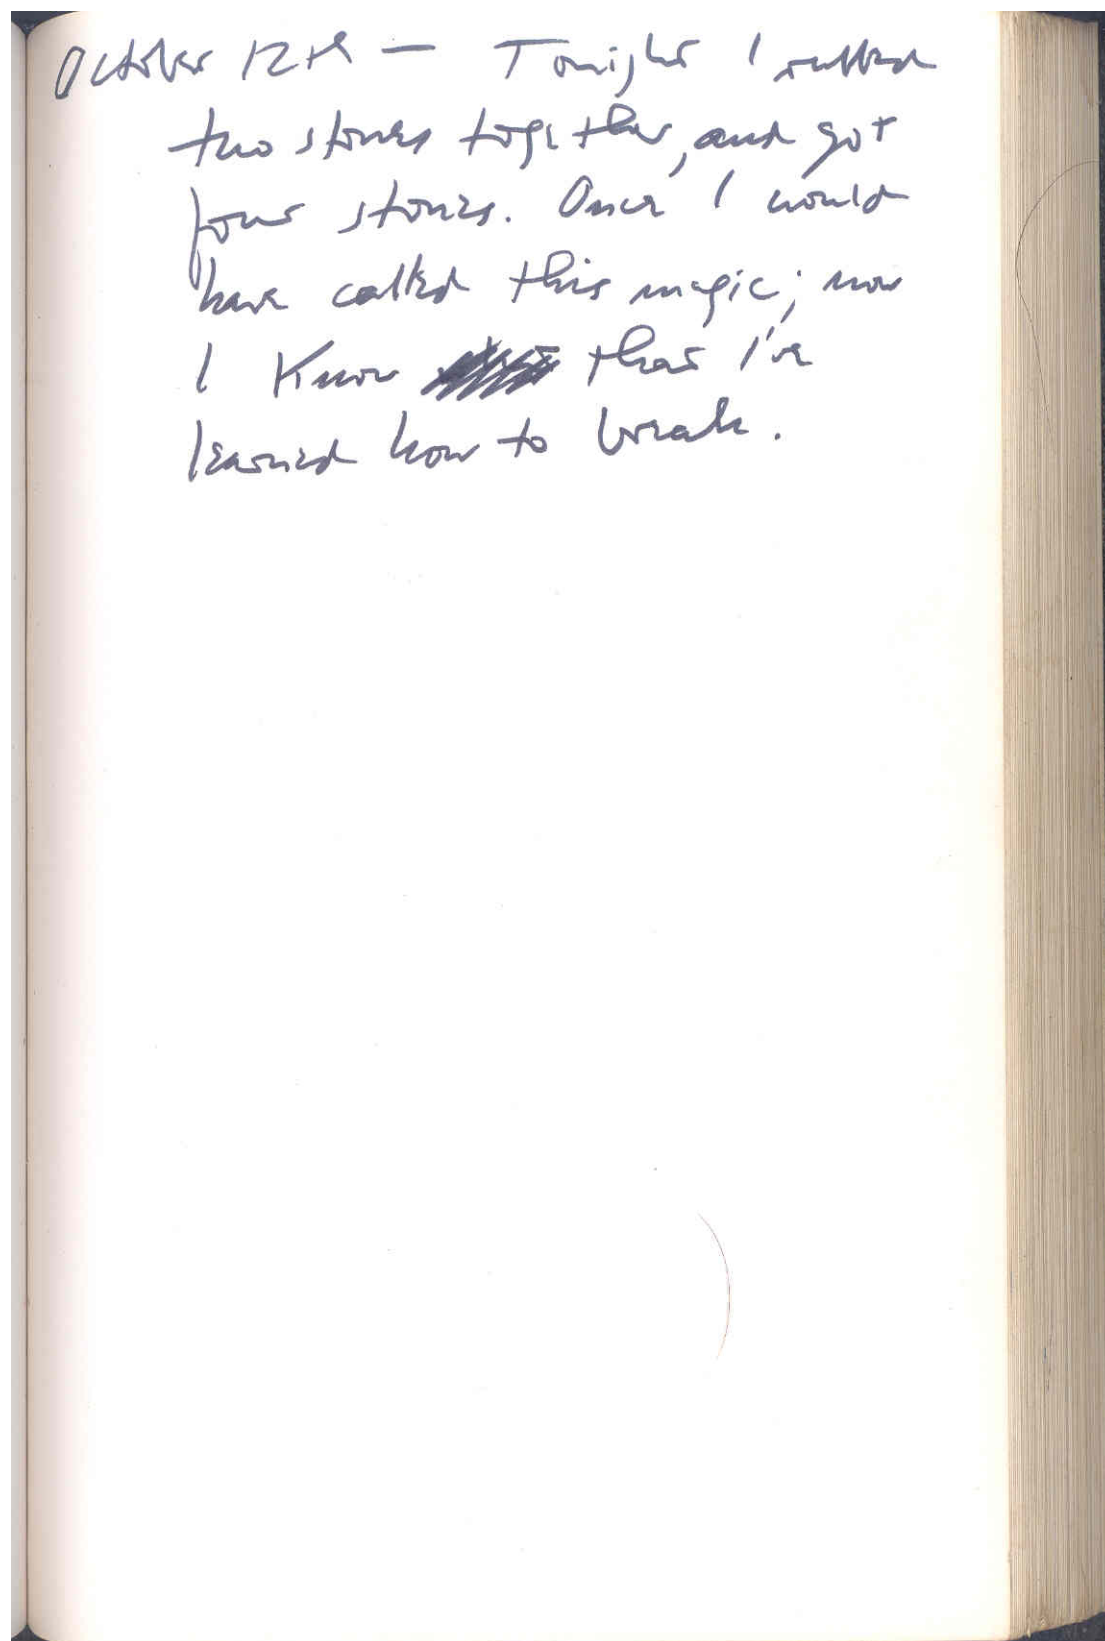 October 12th — Tonight I rubbed
two stones together, and got
four stones. Once I would
have called this magic; now
I know that I've
learned how to break.